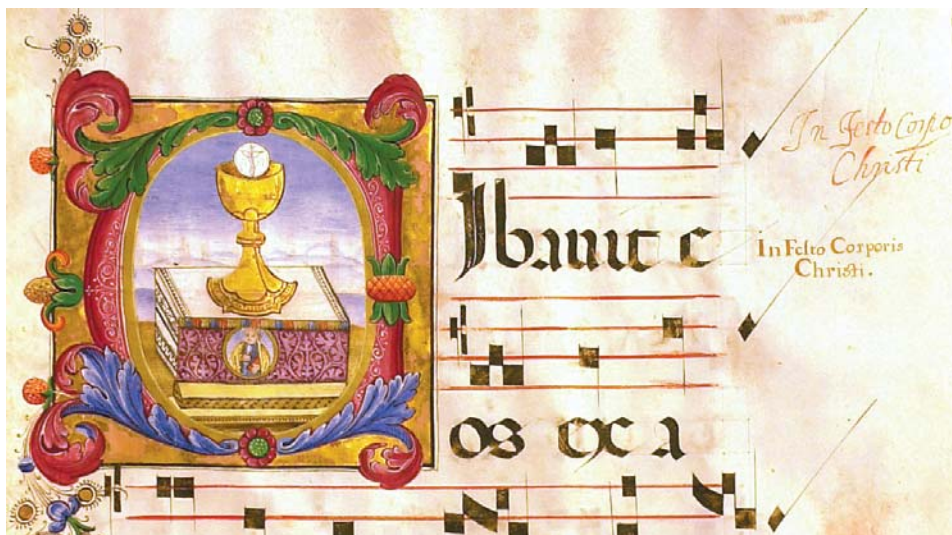 CIbauit e
os ex a
In Festo Corpo
Christi
In Festo Corporis
Christi.